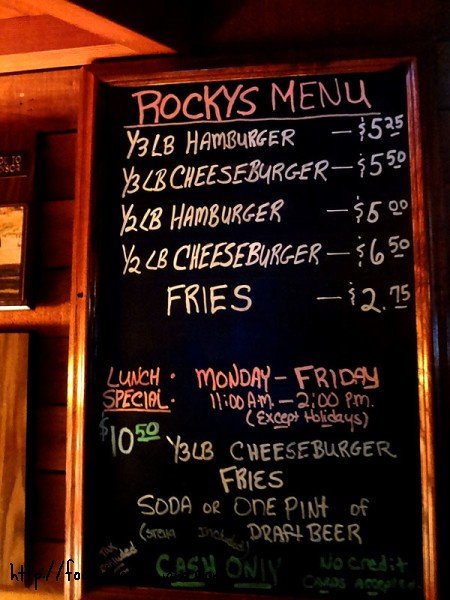 ROCKYS MENU
1/3 LB HAMBURGER — $5 25
1/3 LB CHEESEBURGER — $5 50
1/2 LB HAMBURGER — $6 00
1/2 LB CHEESEBURGER — $6 50
FRIES — $2.75
LUNCH · MONDAY – FRIDAY
SPECIAL · 11:00 A.M. – 2:00 P.M.
(Except Holidays)
$10 50
1/3 LB CHEESEBURGER
FRIES
SODA OR ONE PINT of
DRAFT BEER
TAX
CASH ONLY
NO Credit
CARDS Accepted